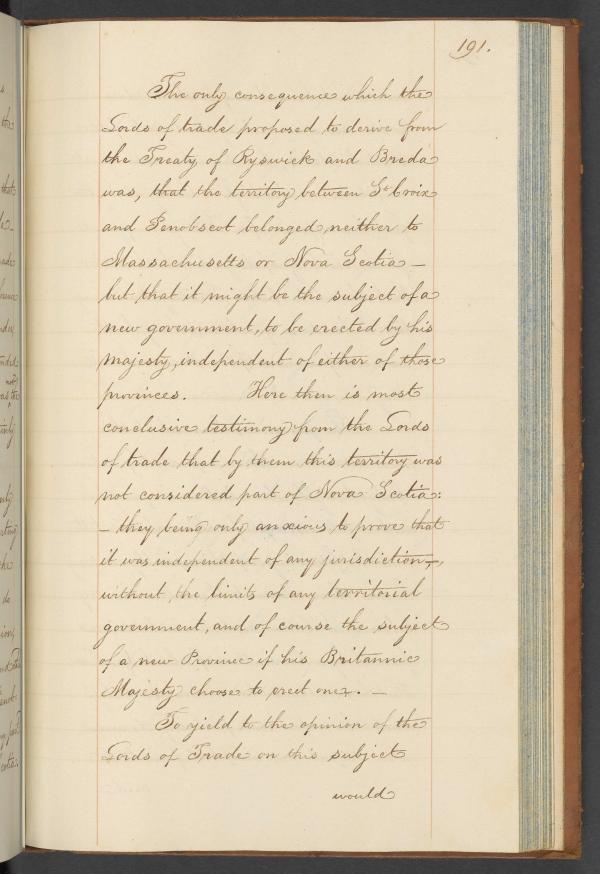 191.
The only consequence which the
Lords of trade proposed to derive from
the Treaty of Ryswick and Breda
was, that the territory between St Croix
and Penobscot belonged neither to
Massachusetts or Nova Scotia –
but that it might be the subject of a
new government, to be erected by his
majesty, independent of either of those
provinces. Here then is most
conclusive testimony from the Lords
of trade that by them this territory was
not considered part of Nova Scotia:
– they being only anxious to prove that
it was independent of any jurisdiction,
without the limits of any territorial
government, and of course the subject
of a new Province if his Britannic
Majesty choose to erect one. –
To yield to the opinion of the
Lords of Trade on this subject
would